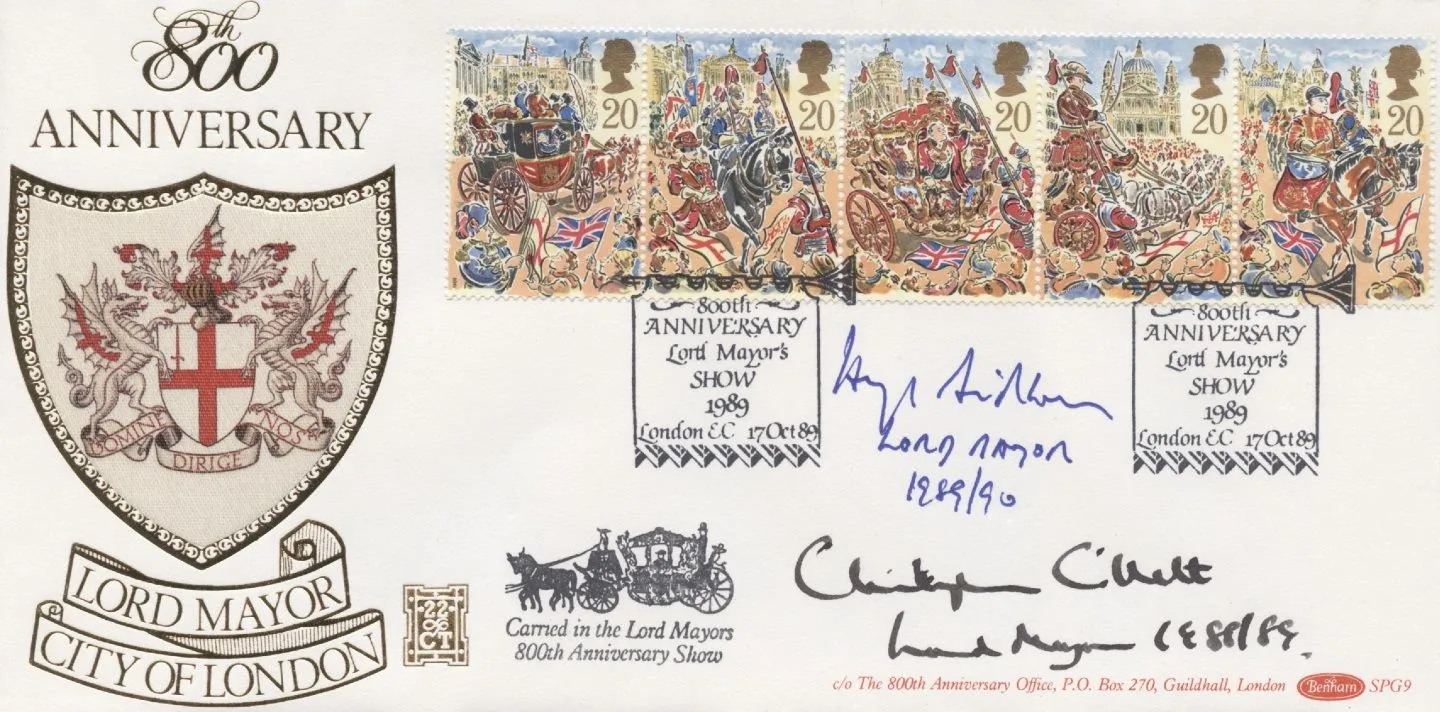 800th
ANNIVERSARY
20
20
20
20
20
DOMINE
DIRIGE
NOS
LORD MAYOR
CITY OF LONDON
22
CT
800th
ANNIVERSARY
Lord Mayor's
SHOW
1989
London E.C 17 Oct 89
800th
ANNIVERSARY
Lord Mayor's
SHOW
1989
London E.C 17 Oct 89
LORD MAYOR
1989/90
Carried in the Lord Mayors
800th Anniversary Show
Christopher Collett
Lord Mayor 1988/89.
c/o The 800th Anniversary Office, P.O. Box 270, Guildhall, London
Benham
SPG9